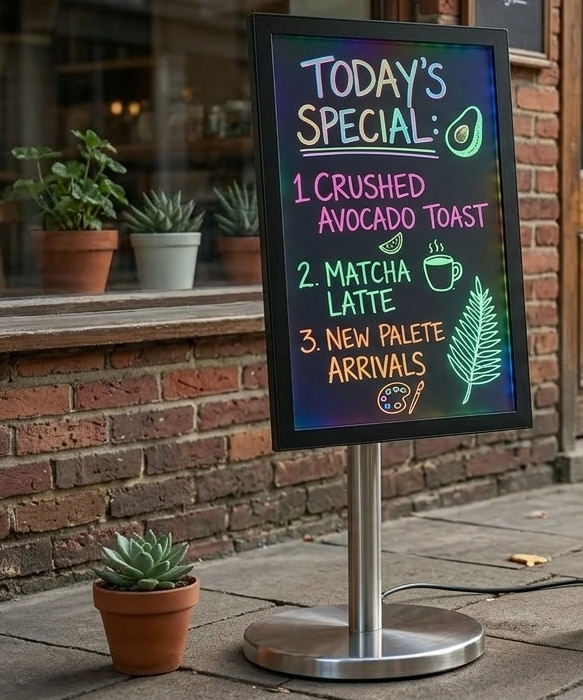 TODAY'S
SPECIAL:
1 CRUSHED
AVOCADO TOAST
2. MATCHA
LATTE
3. NEW PALETE
ARRIVALS